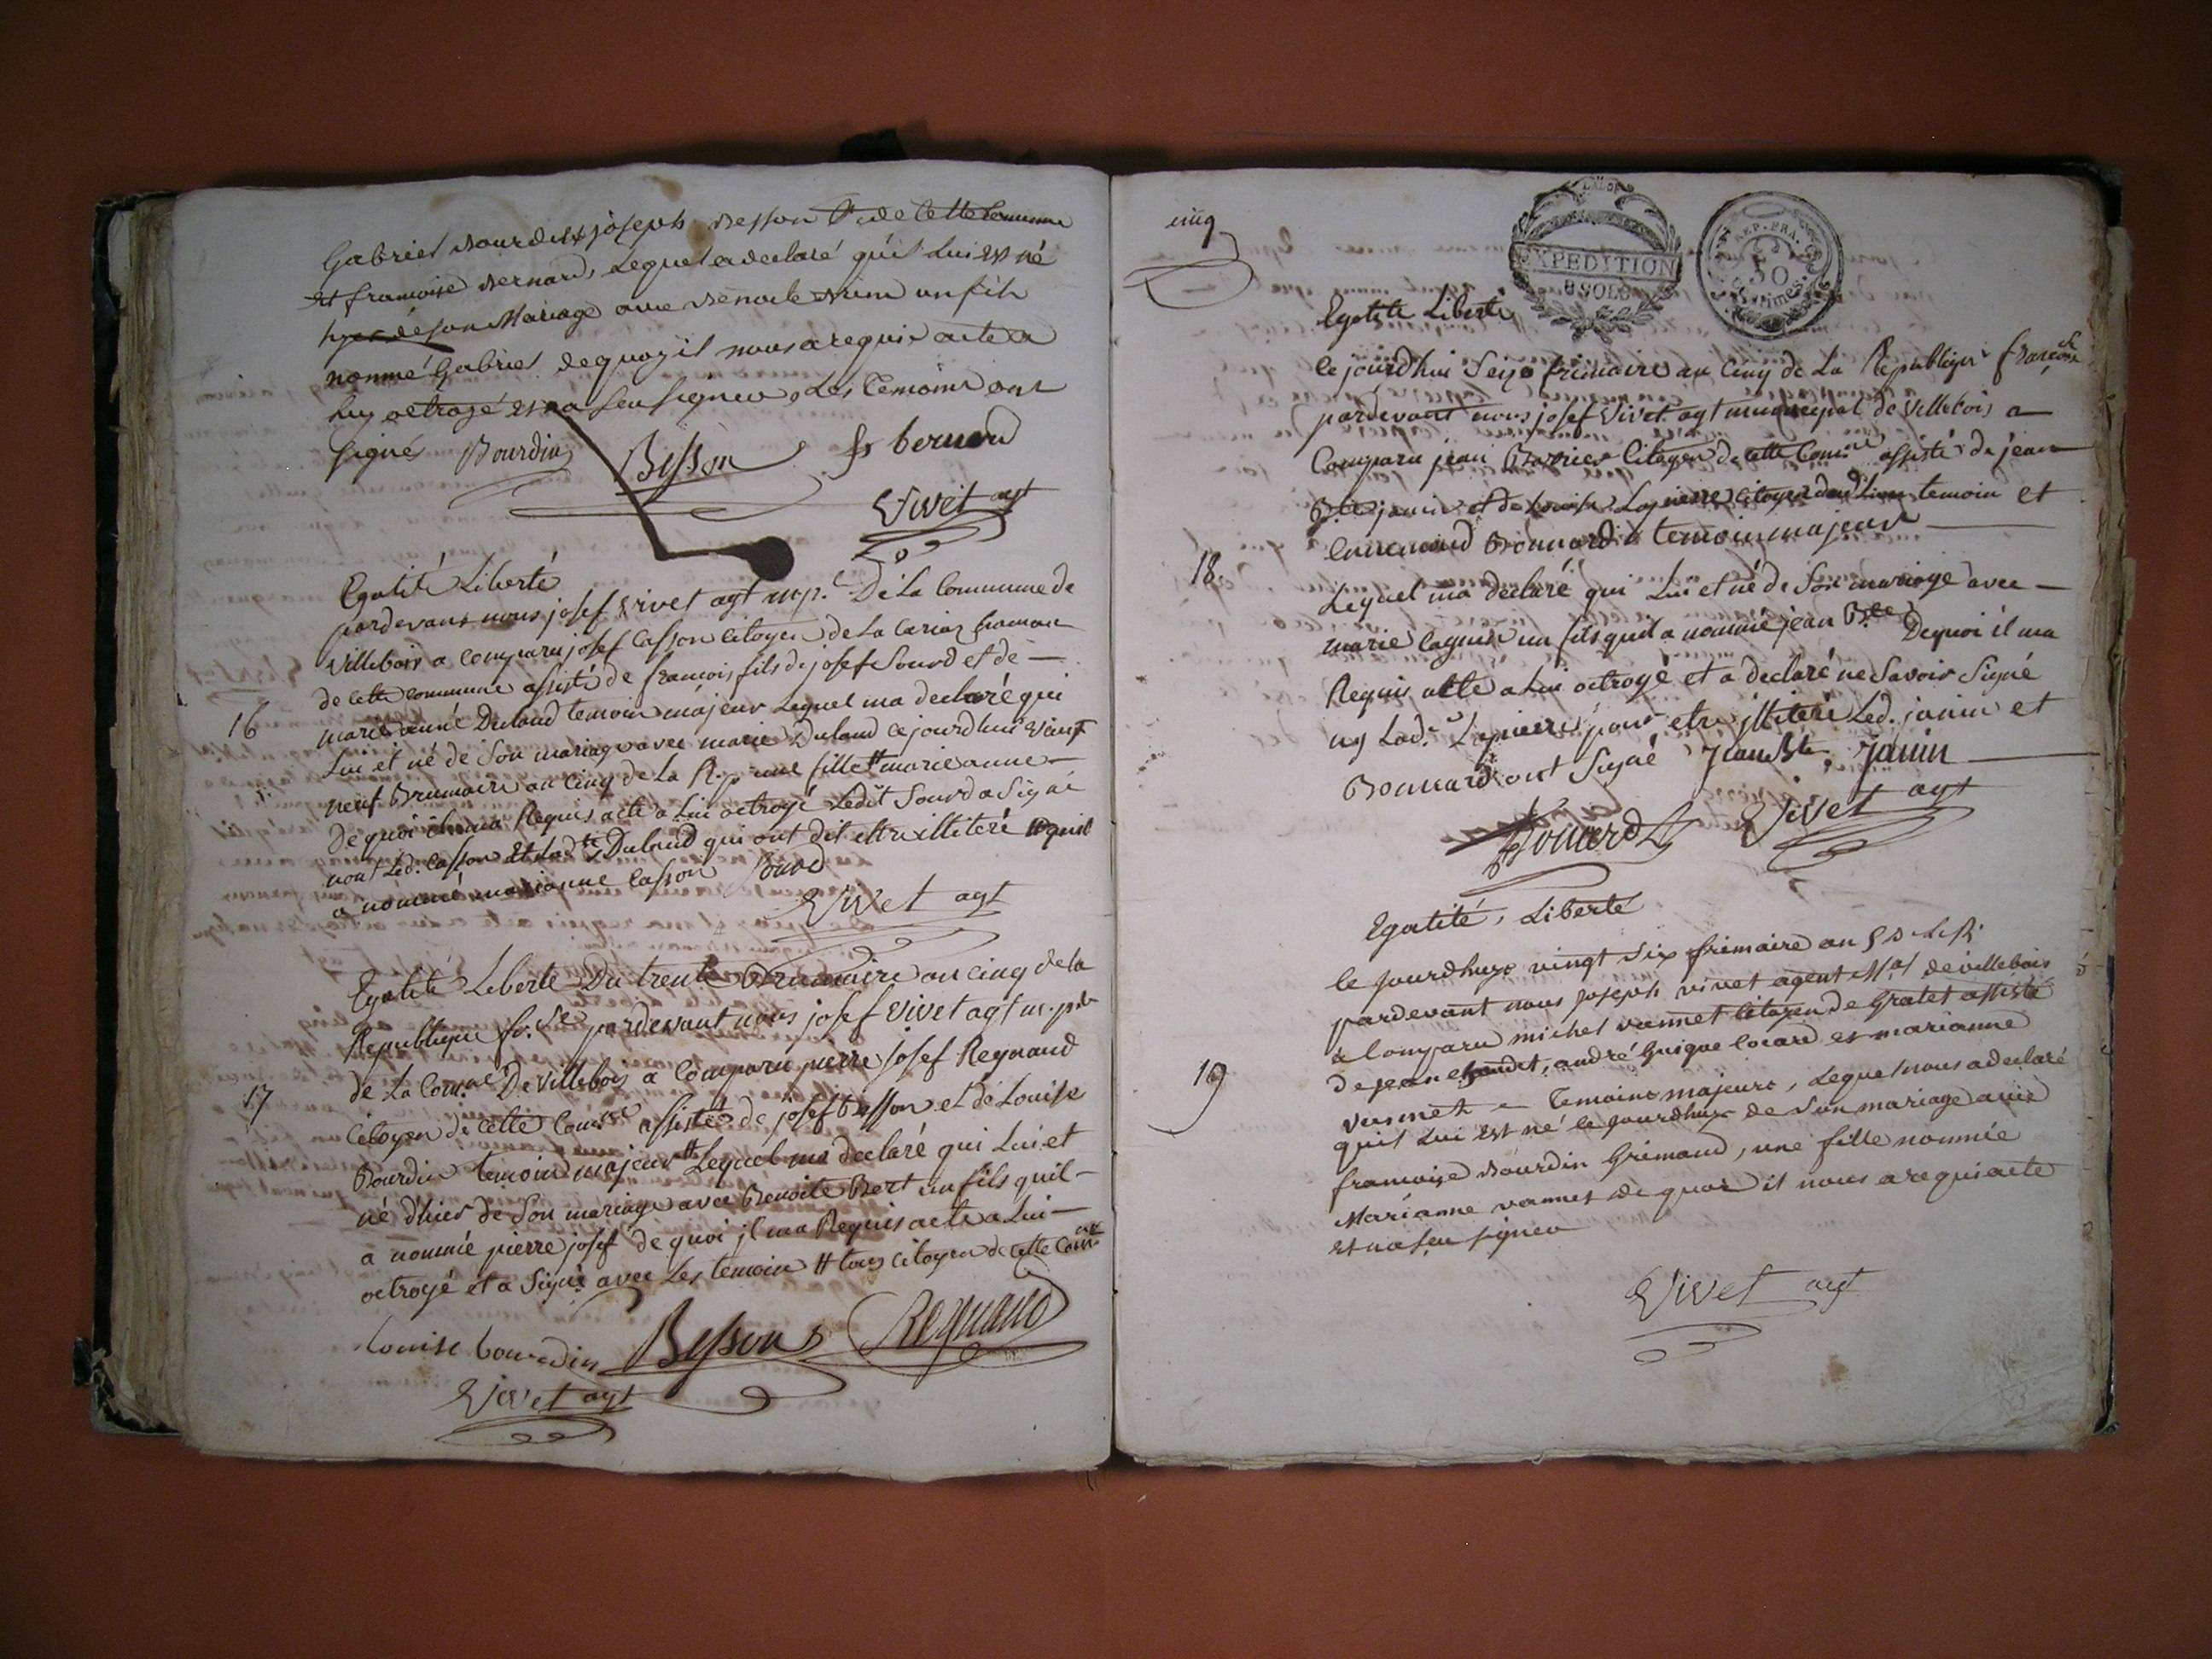 Gabriel Bourdin joseph Besson de cette Commune
et francoise Bernard, Lequel a declaré qu'il Lui est né
hyer de son Mariage avec Benoite un fils
nommé Gabriel de quoy il nous a requis acte a
luy octroyé et n'a seu signer, Les Temoins ont
signé Bourdin Besson fr bernard
Vivet agt
Egalité Liberté
pardevant nous josef vivet agt mp.l De La Commune de
villebois a comparu josef Casson citoyen de La
de cette commune assisté de francois fils de josef Sourd et de
16
marie anne Dulaud temoin majeur Lequel ma declaré qui
Lui et né de Son mariage avec marie Dulaud cejourdhui vint
neuf Brumaire an cinq de La Rep. une fille # marie anne
De quoi il ma Requis acte a Lui octroyé Ledit Sourd a Signé
non Led. Casson et Lad.te Dulaud qui ont dit etre illiteré # quil
a nommé marianne Casson Sourd
Vivet agt
Egalité Liberté Du trente Brumaire an cinq de la
Republique fr.se pardevant nous josef Vivet agt m.pal
de La Com.ne De villebois a Comparu pierre Josef Reynaud
17
Citoyen de cette Com.ne assisté de josef besson et de Louise
Bourdin temoins majeur # Lequel ma declaré qui Lui et
né d'hier de Son mariage avec Benoite Bert un fils quil
a nommé pierre josef de quoi jl ma Requis acte a Lui
octroyé et a Signé avec Les temoin # tous citoyen de cette Com.ne
Louise bourdin Besson Reynaud
Vivet agt
cinq
EXPEDITION
8 SOLS
REP. FRA.
50
Centimes
Egalité Liberté
Cejourdhui Seize frimaire an Cinq de La Republique francoise
pardevant nous josef Vivet agt municipal de Villebois a
Comparu jean Citoyen de cette Com.ne assisté de jean
B.te janin et de Louise Lapierre citoyen dud Lieu temoin et
Bonnard temoin majeur
18
Lequel ma declaré qui Lui et né de Son mariage avec
marie un fils quil a nommé jean B.te Dequoi il ma
Requis acte a Lui octroyé et a declaré ne Savoir Signé
ny Lad.e Lapierre pour etre jlliteré Led. janin et
Bonnard ont Signé Jean Bte Janin
Bonnard Vivet agt
Egalité, Liberté
le jourdhuy vingt Six frimaire an 5 D L R
pardevant nous joseph vivet agent M.al de villebois
a Comparu michel vannet Citoyen de Gratet assisté
de jean chaudet, andré Guigue Cocard et marianne
19
Vannet Temoins majeurs, Lequel nous a declaré
quil Lui est né le jourdhuy de Son mariage avec
francoise Bourdin Grimaud, une fille nommée
Marianne vannet de quoi il nous a requi acte
et n'a seu signer
Vivet agt